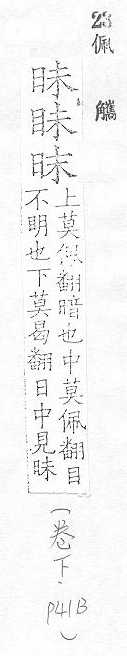 23佩觿
昧眛昩
上莫佩翻暗也中莫佩翻目
不明也下莫曷翻日中見昧
(卷下. P41B)